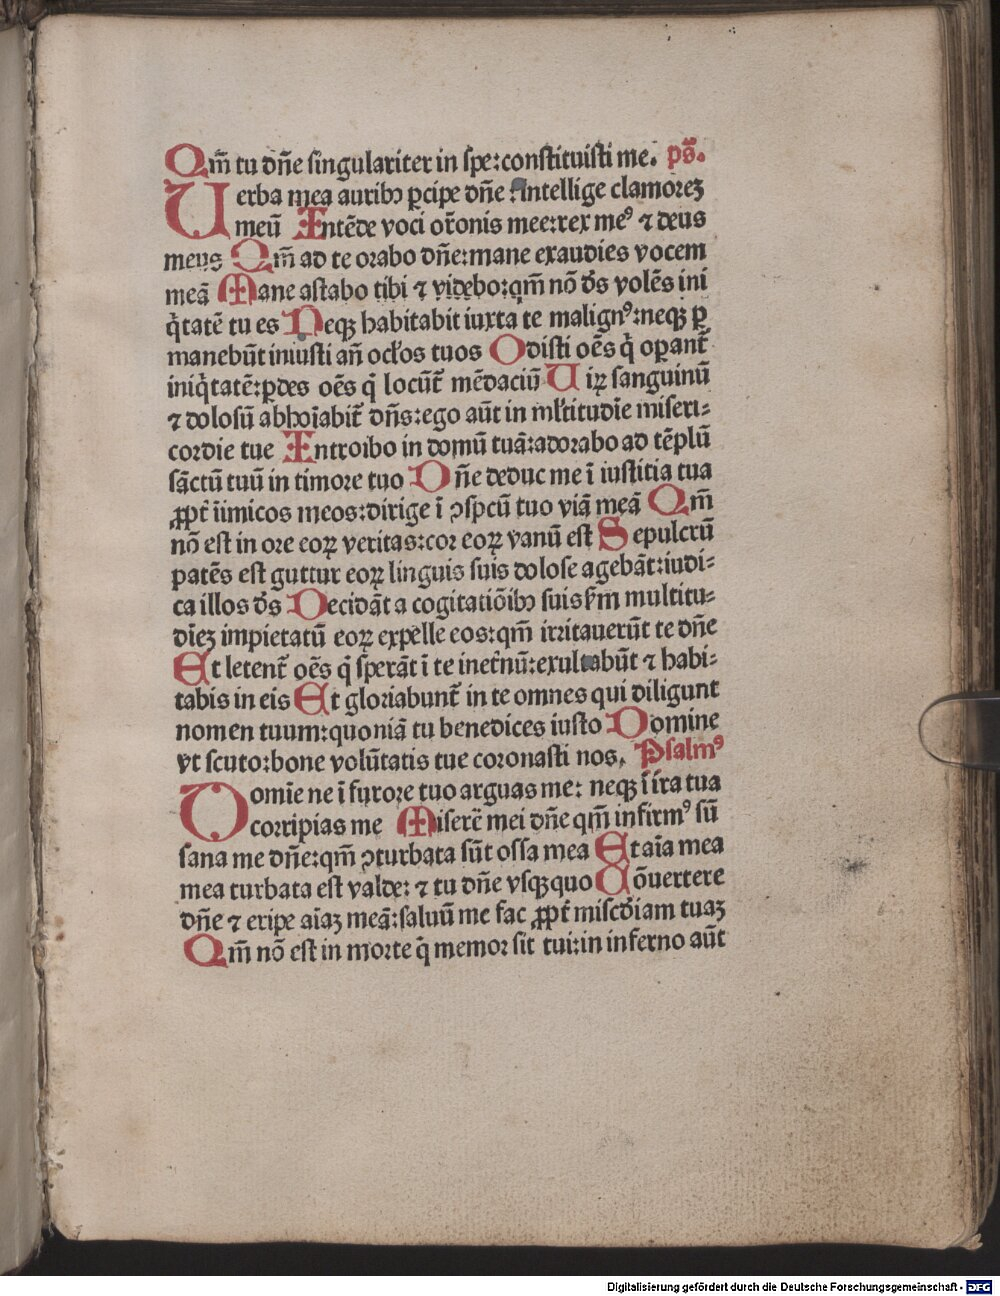 Qm̄ tu dn̄e singulariter in spe:constituisti me. ps̄.
Uerba mea auribꝰ ꝑcipe dn̄e :intellige clamoreꝫ
meū Intēde voci or̄onis mee:rex meꝰ ⁊ deus
meus Qm̄ ad te orabo dn̄e:mane exaudies vocem
meā Mane astabo tibi ⁊ videbo:qm̄ nō ds̄ volēs ini
q̄tatē tu es Neqꝫ habitabit iuxta te malignꝰ:neqꝫ ꝑ
manebūt iniusti an̄ ocl̄os tuos Odisti oēs q̄ oꝑant̄
iniq̄tatē:ꝑdes oēs q̄ locūt̄ mēdaciū Uiꝝ sanguinū
⁊ dolosū abhoīabit̄ dn̄s:ego aūt in ml̄titudīe miseri:
cordie tue Introibo in domū tuā:adorabo ad tēplū
sāctū tuū in timore tuo Dn̄e deduc me ī iustitia tua
ꝓpt̄ īimicos meos:dirige ī ↄspcū tuo viā meā Qm̄
nō est in ore eoꝝ veritas:cor eoꝝ vanū est Sepulcrū
patēs est guttur eoꝝ linguis suis dolose agebāt:iudi:
ca illos ds̄ Decidāt a cogitatiōibꝰ suis s̄m multitu:
dīeꝫ impietatū eoꝝ expelle eos:qm̄ irritauerūt te dn̄e
Et letent̄ oēs q̄ sperāt ī te inet̄nū:exultabūt ⁊ habi:
tabis in eis Et gloriabunt̄ in te omnes qui diligunt
nomen tuum:quoniā tu benedices iusto Domine
vt scuto:bone volūtatis tue coronasti nos. Psalmꝰ
Domīe ne ī furore tuo arguas me: neqꝫ ī ira tua
corripias me Miserē mei dn̄e qm̄ infirmꝰ sū
sana me dn̄e:qm̄ ↄturbata sūt ossa mea Et aīa mea
mea turbata est valde: ⁊ tu dn̄e vsqꝫquo Cōuertere
dn̄e ⁊ eripe aīaꝫ meā:saluū me fac ꝓpt̄ misc̄diam tuaꝫ
Qm̄ nō est in morte q̄ memor sit tui:in inferno aūt
Digitalisierung gefördert durch die Deutsche Forschungsgemeinschaft - DFG